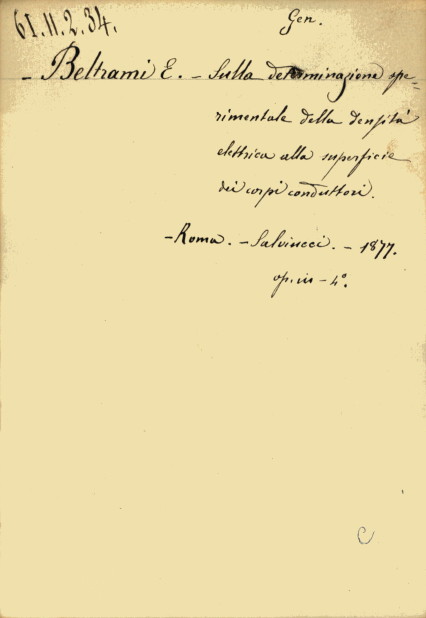 61.11.2.34.
Gen.
- Beltrami E. - Sulla determinazione spe=
rimentale della densità
elettrica alla superficie
dei corpi conduttori.
- Roma. - Salviucci. - 1877.
op. in - 4°.
C